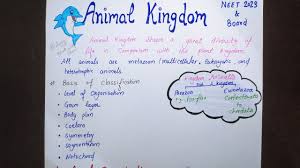 Animal Kingdom
NEET 2023
&
Board
Animal Kingdom shows a great diversity of
life in Comparison with the plant Kingdom.
All animals are metazoan (multicellular, eukaryotic and
heterotrophic animals.
Basis of Classification
Level of Organisation
Germ layer
Body plan
Coelom
Symmetry
Segmentation
Notochord
Kingdom Animalia
Parazoa
Eumetazoa
Porifera
Coelenterata to
chordata